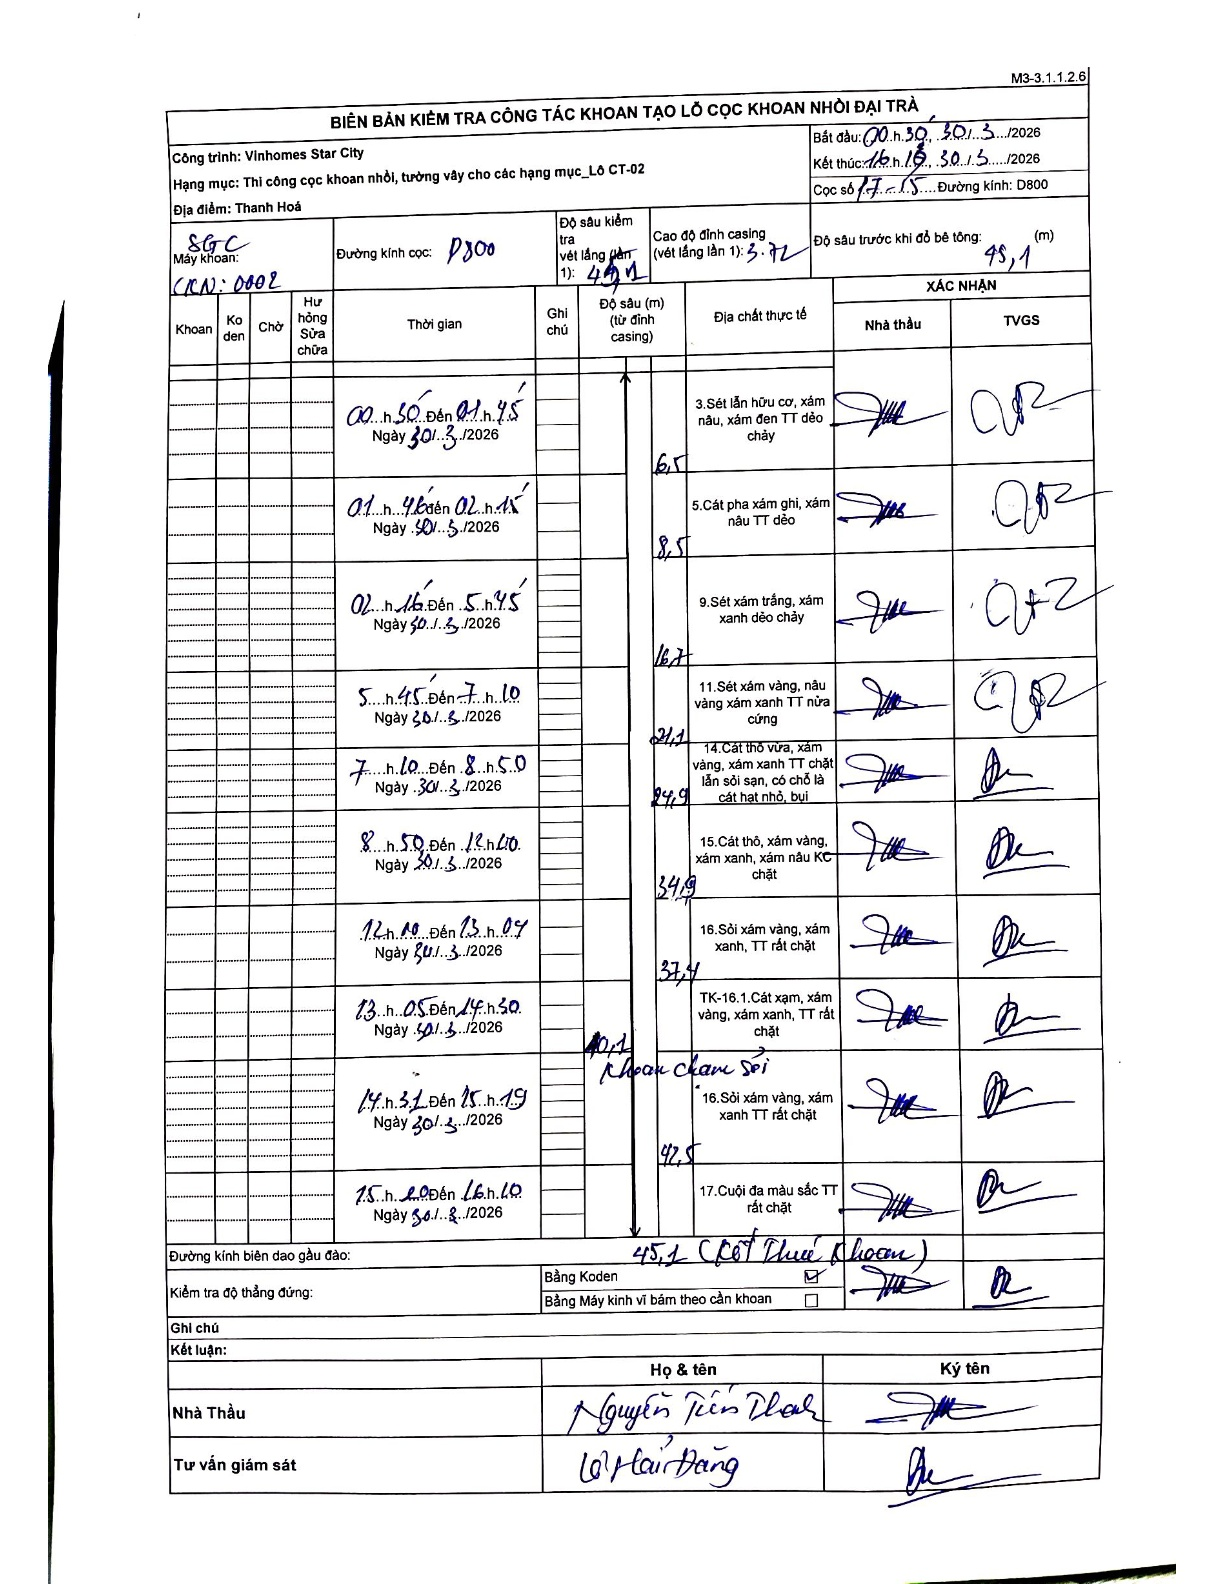 M3-3.1.1.2.6
BIÊN BẢN KIỂM TRA CÔNG TÁC KHOAN TẠO LỖ CỌC KHOAN NHỒI ĐẠI TRÀ
Công trình: Vinhomes Star City
Hạng mục: Thi công cọc khoan nhồi, tường vây cho các hạng mục_Lô CT-02
Địa điểm: Thanh Hoá
Bắt đầu: 00.h.30, 30/.3.../2026
Kết thúc: 16.h.10., 30./.3...../2026
Cọc số 17-15....Đường kính: D800
SGC
Máy khoan:
CKN: 0002
Đường kính cọc: D800
Độ sâu kiểm
tra
vét lắng (lần
1): 45,1
Cao độ đỉnh casing
(vét lắng lần 1): 3.72
Độ sâu trước khi đổ bê tông: (m)
45,1
Khoan
Ko
den
Chờ
Hư
hỏng
Sửa
chữa
Thời gian
Ghi
chú
Độ sâu (m)
(từ đỉnh
casing)
Địa chất thực tế
XÁC NHẬN
Nhà thầu
TVGS
00...h.30...Đến 01.h.45
Ngày 30/..3../2026
3.Sét lẫn hữu cơ, xám
nâu, xám đen TT dẻo
chảy
6,5
01...h..46 đến 02..h.15
Ngày .30/...3../2026
5.Cát pha xám ghi, xám
nâu TT dẻo
8,5
02...h..16.Đến .5..h.45
Ngày 30../..3/2026
9.Sét xám trắng, xám
xanh dẻo chảy
16,7
5...h.45.Đến 7..h..10
Ngày 30/..3../2026
11.Sét xám vàng, nâu
vàng xám xanh TT nửa
cứng
21,1
7....h.10..Đến .8..h.50
Ngày .30/..3./2026
14.Cát thô vừa, xám
vàng, xám xanh TT chặt
lẫn sỏi sạn, có chỗ là
cát hạt nhỏ, bụi
24,9
8...h.50.Đến .12.h.10.
Ngày 30/..3../2026
15.Cát thô, xám vàng,
xám xanh, xám nâu KC
chặt
34,9
.12.h..10...Đến 13.h.04
Ngày 30/...3./2026
16.Sỏi xám vàng, xám
xanh, TT rất chặt
37,4
13..h..05.Đến 14.h.30.
Ngày 30/..3../2026
TK-16.1.Cát xạm, xám
vàng, xám xanh, TT rất
chặt
40,1
Khoan chạm sỏi
14.h.31.Đến 15..h.19
Ngày 30/..3../2026
16.Sỏi xám vàng, xám
xanh TT rất chặt
42,5
15..h..20Đến .16.h.10.
Ngày 30./..3./2026
17.Cuội đa màu sắc TT
rất chặt
Đường kính biên dao gầu đào:
45,1 (Kết Thúc Khoan)
Kiểm tra độ thẳng đứng:
Bằng Koden
Bằng Máy kinh vĩ bám theo cần khoan
Ghi chú
Kết luận:
Họ & tên
Ký tên
Nhà Thầu
Nguyễn Tiến Thanh
Tư vấn giám sát
Lê Hải Đăng